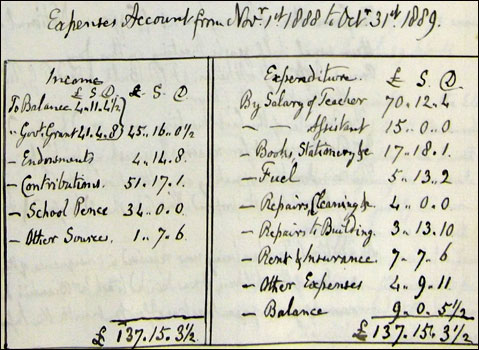 Expenses Account from Novr. 1st 1888 to Octr. 31st 1889.
Income
£ S. D £. S. D
To Balance 4..11..4½
" Govt. Grant 41..4..8 45..16..0½
— Endowments 4..14..8.
— Contributions. 51..17..1.
— School Pence 34..0..0.
— Other Sources. 1..7..6
£ 137..15..3½
Expenditure. £ S. D
By Salary of Teacher 70..12..4
— — Assistant 15..0..0.
— Books, Stationery &c 17..18..1.
— Fuel 5..13..2
— Repairs, Cleaning &c 4..0..0
— Repairs to Building. 3..13..10
— Rent & Insurance. 7..7..6
— Other Expenses 4..9..11
— Balance 9..0..5½
£ 137..15..3½